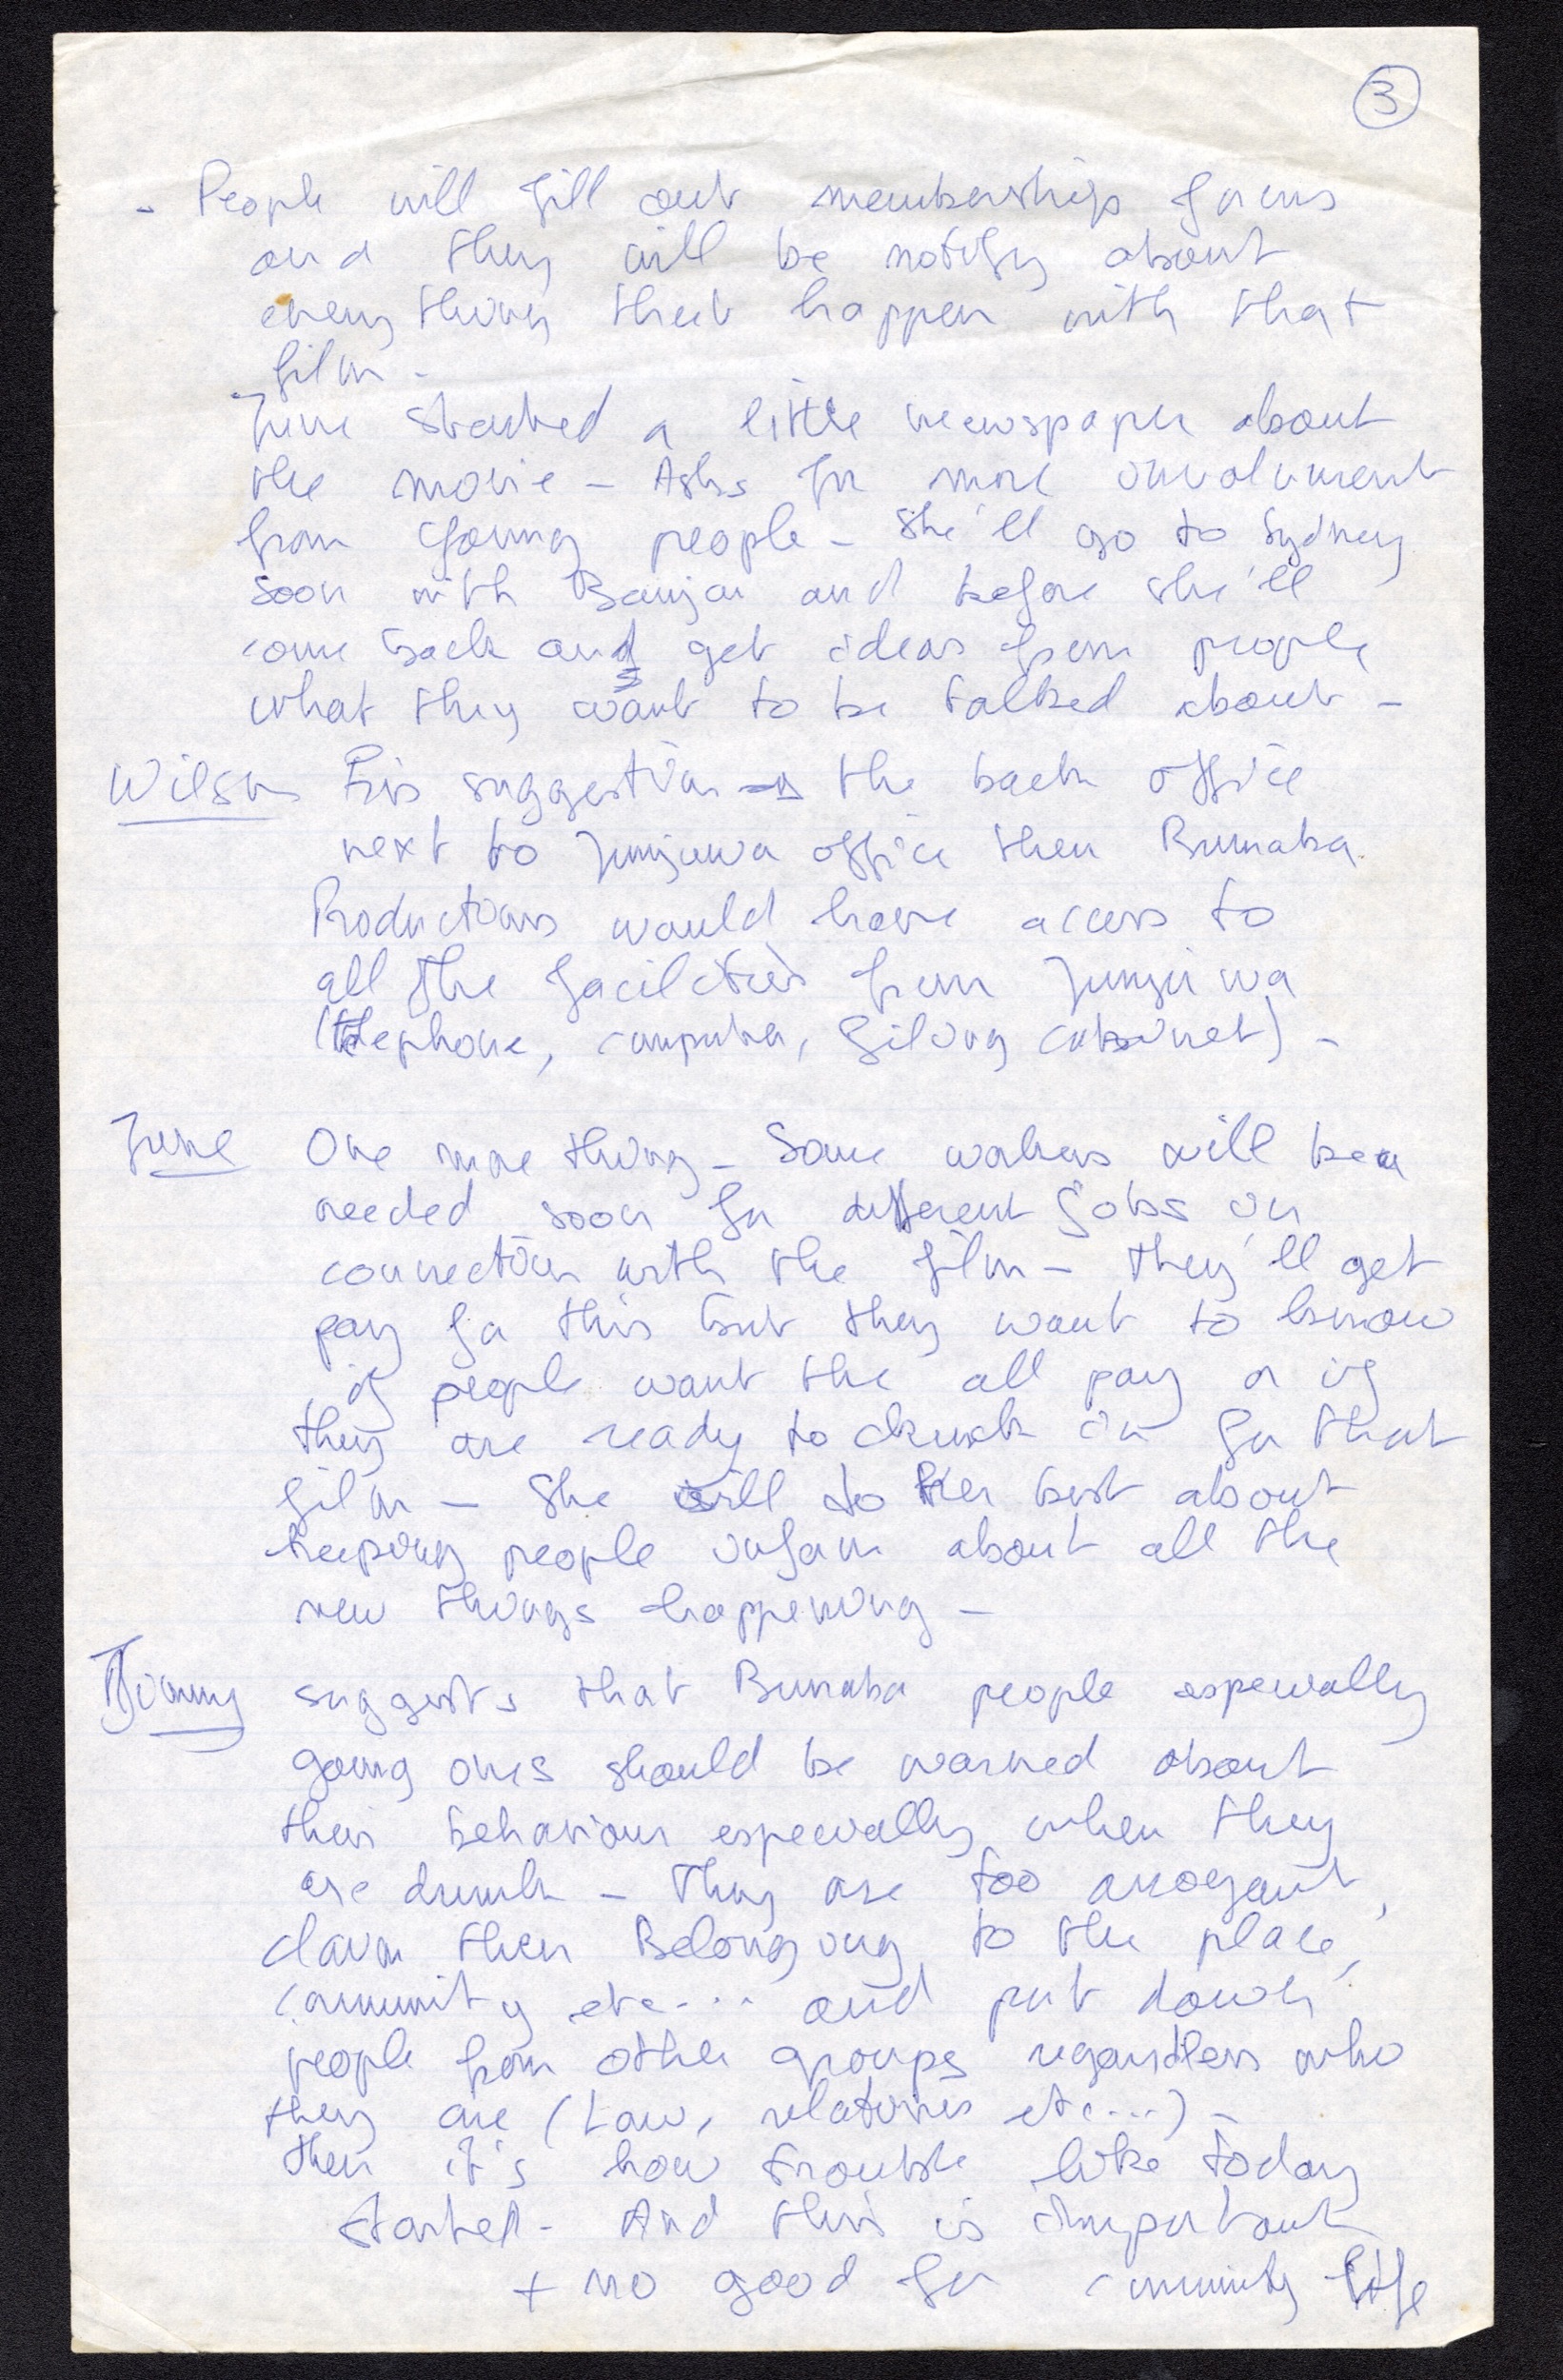 3
- People will fill out membership forms
and they will be notify about
every thing that happen with that
film -
June started a little newspaper about
the movie - Asks for more involvment
from young people - She'll go to Sydney
soon with Banjo and before she'll
come back and get ideas from people
what they want to be talked about -
Wilson His suggestion is the back office
next to Junjuwa office then Bunaba
Productions would have access to
all the facilities from Junjuwa
(telephone, computer, filing cabinet) -
June One more thing - Some workers will be
needed soon for different jobs in
connection with the film - They'll get
pay for this but they want to know
if people want the all pay or if
they are ready to chuck in for that
film - She will do her best about
keeping people inform about all the
new things happening -
Jimmy suggests that Bunaba people especially
young ones should be warned about
their behaviour especially when they
are drunk - They are too arrogant,
claim their Belonging to the place,
community etc... and put down
people from other groups regardless who
they are (Law, relatives etc...) -
then it's how trouble like today
started - And this is important
+ no good for community life